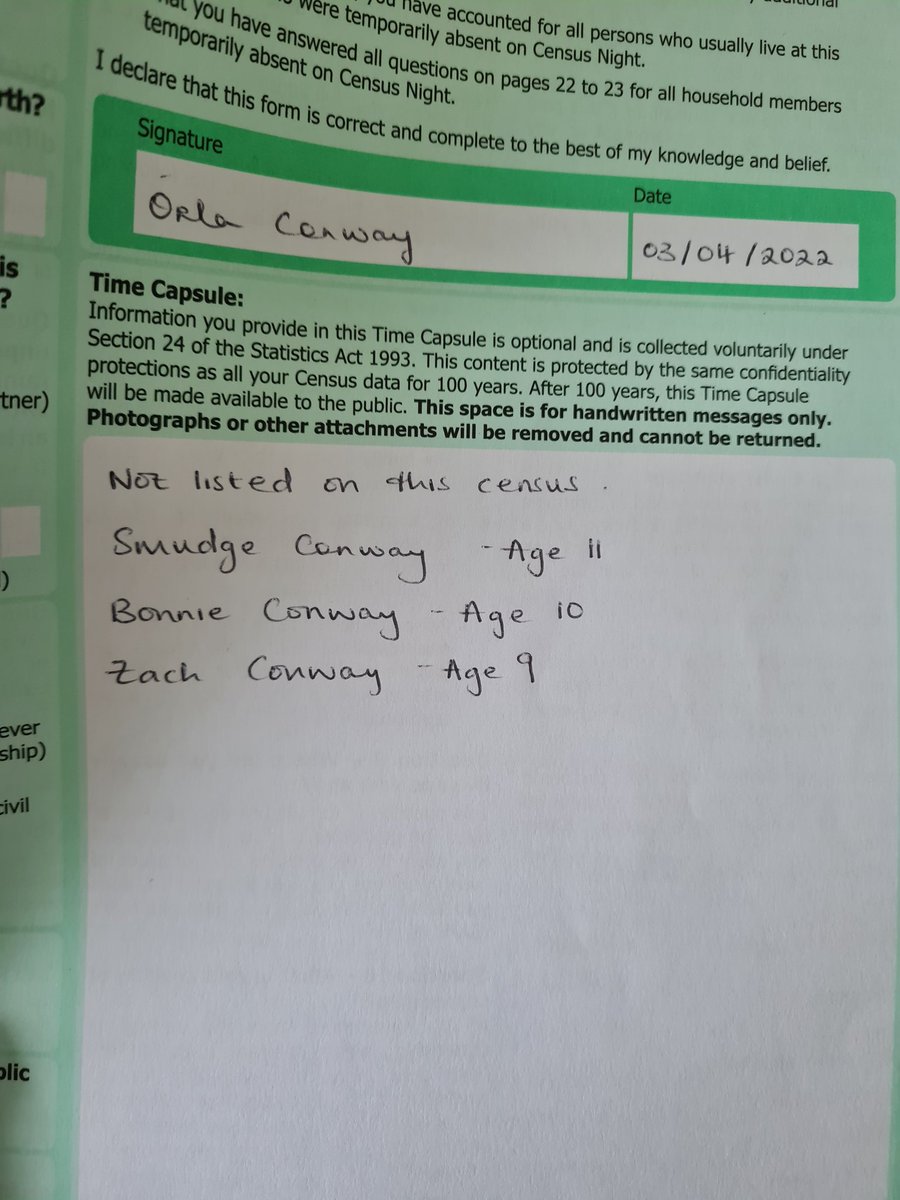 you have accounted for all persons who usually live at this
were temporarily absent on Census Night.
you have answered all questions on pages 22 to 23 for all household members
temporarily absent on Census Night.
I declare that this form is correct and complete to the best of my knowledge and belief.
Signature
Date
Orla Conway
03/04/2022
Time Capsule:
Information you provide in this Time Capsule is optional and is collected voluntarily under
Section 24 of the Statistics Act 1993. This content is protected by the same confidentiality
protections as all your Census data for 100 years. After 100 years, this Time Capsule
will be made available to the public. This space is for handwritten messages only.
Photographs or other attachments will be removed and cannot be returned.
Not listed on this census.
Smudge Conway - Age 11
Bonnie Conway - Age 10
Zach Conway - Age 9
rth?
is
?
tner)
)
ever
ship)
civil
blic